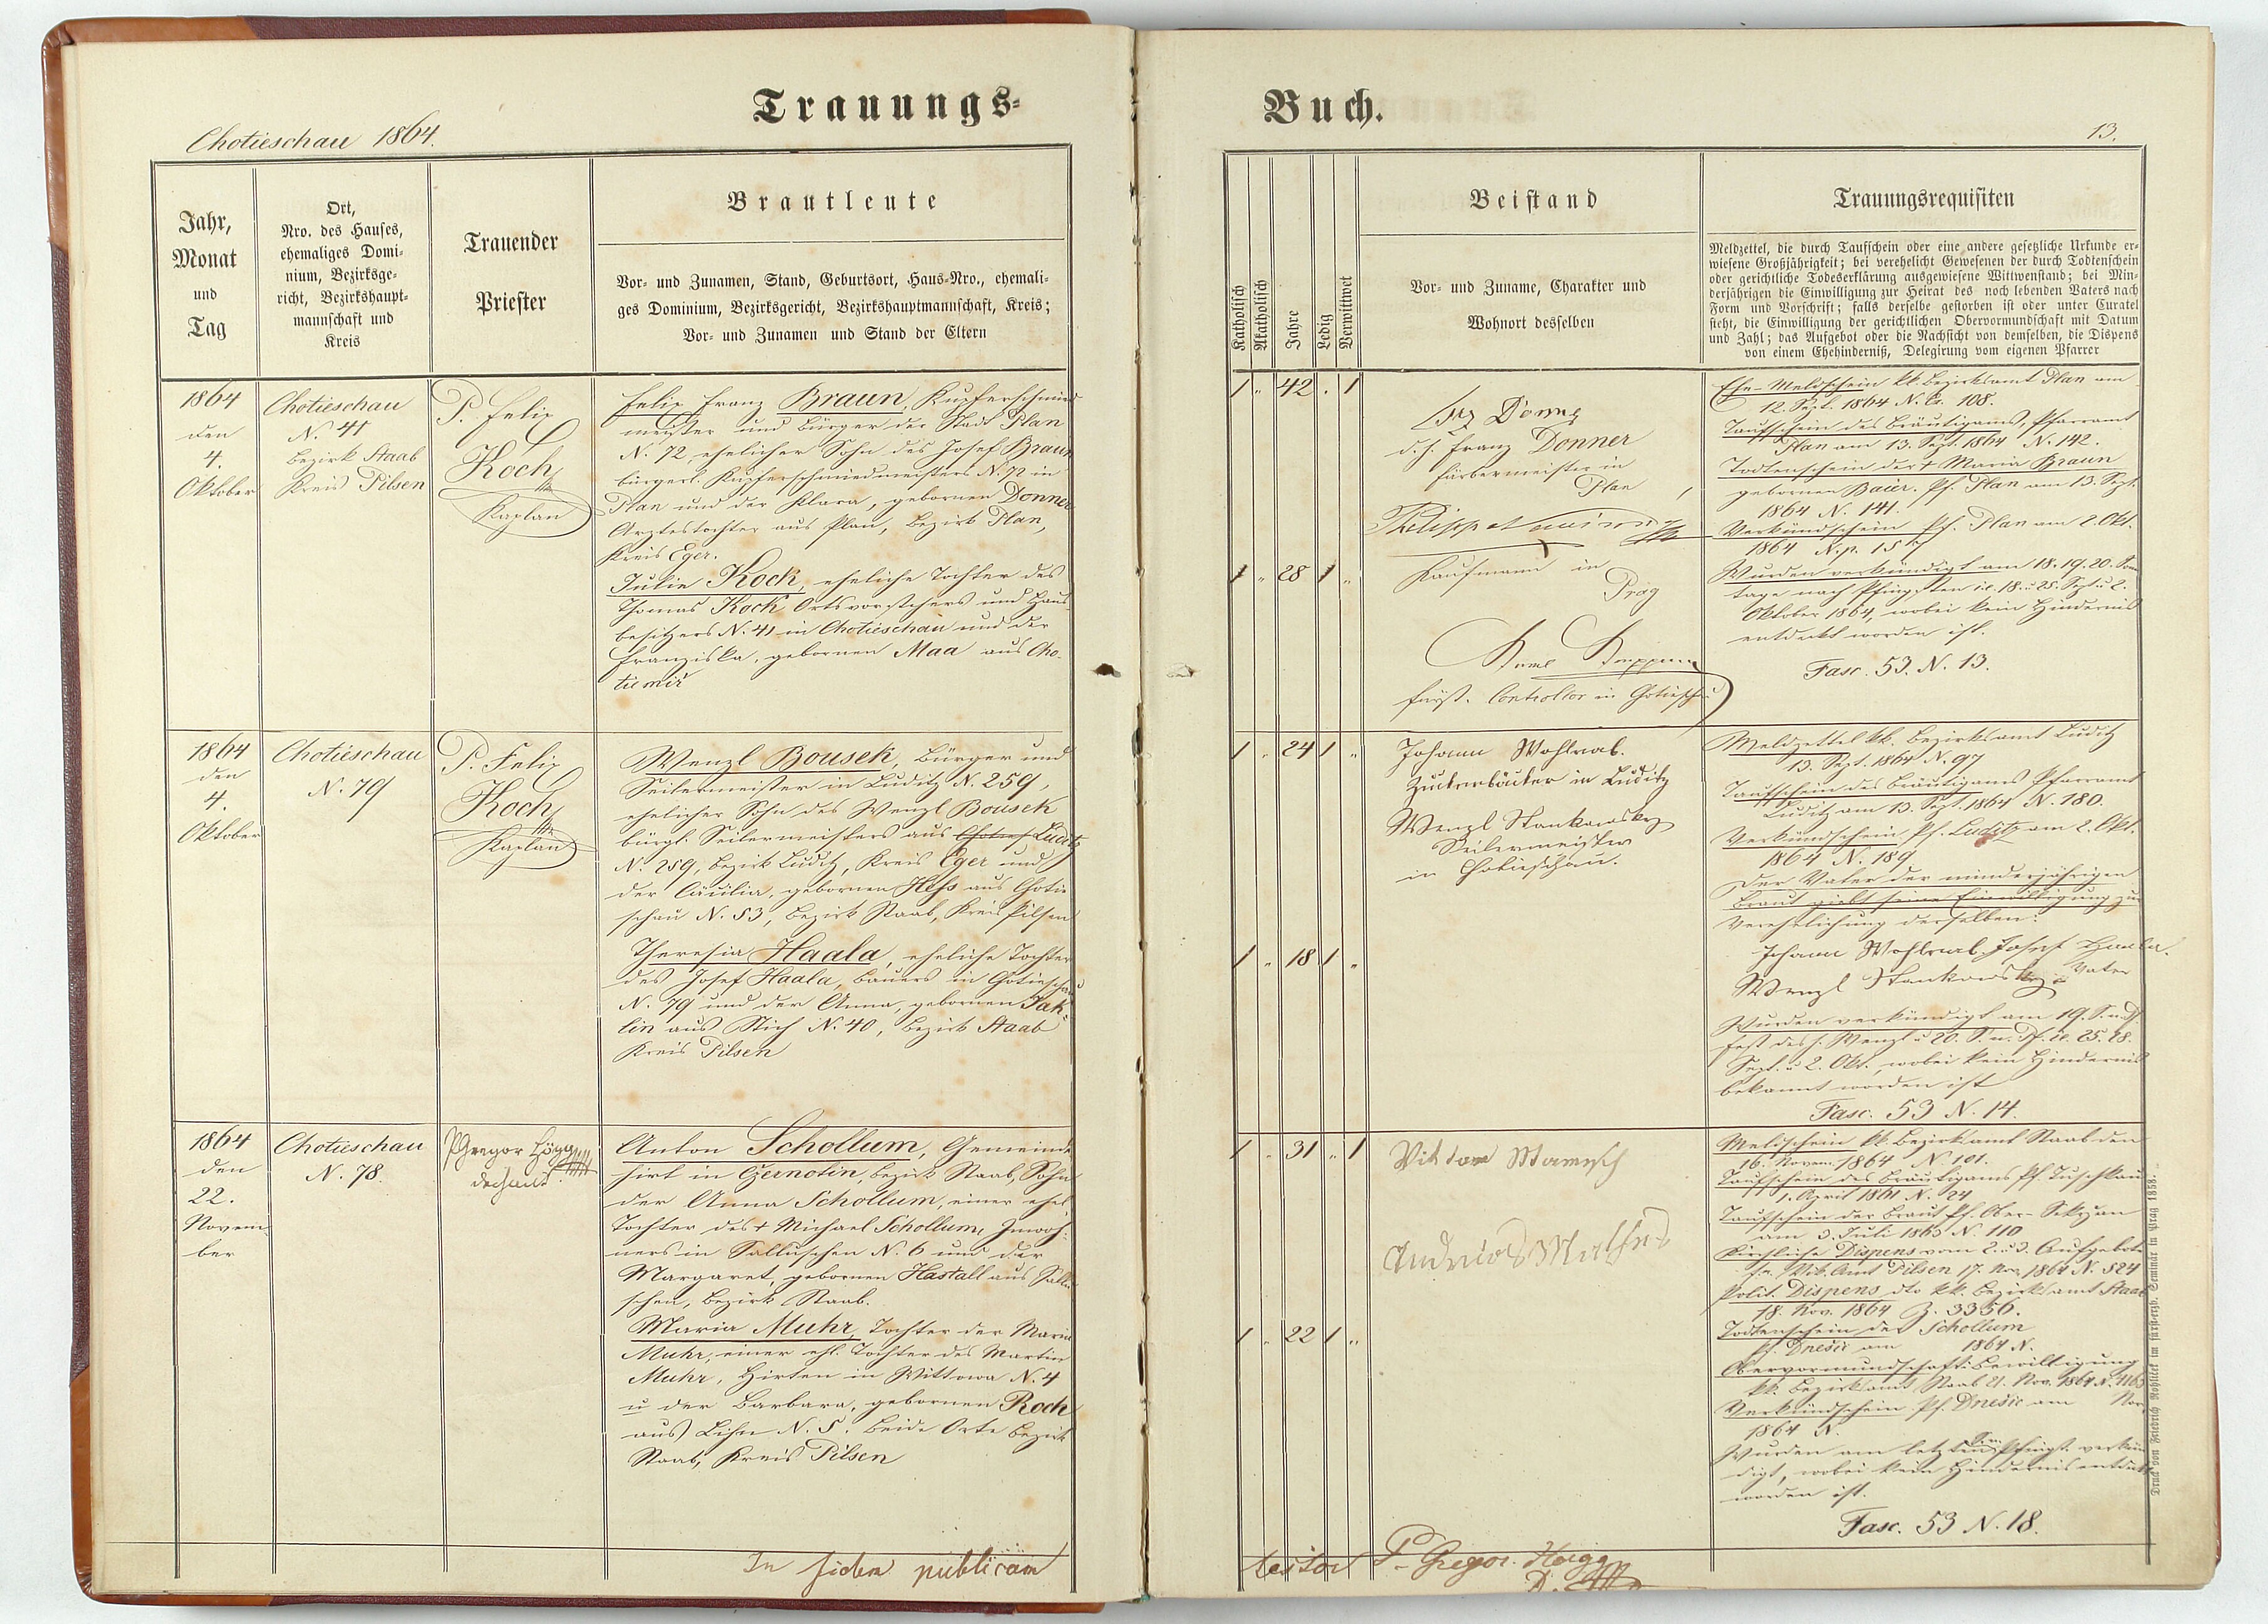 Trauungs-
Chotieschau 1864.
Jahr,
Monat
und
Tag
Ort,
Nro. des Hauses,
ehemaliges Domi-
nium, Bezirksge-
richt, Bezirkshaupt-
mannschaft und
Kreis
Trauender
Priester
Brautleute
Vor- und Zunamen, Stand, Geburtsort, Haus-Nro., ehemali-
ges Dominium, Bezirksgericht, Bezirkshauptmannschaft, Kreis;
Vor- und Zunamen und Stand der Eltern
1864
den
4.
Oktober
Chotieschau
N. 41
Bezirk Staab
Kreis Pilsen
P. Felix
Koch
Kaplan
Felix Franz Braun, Kupferschmied
meister und Bürger der Stadt Plan
N. 72, ehelicher Sohn des Josef Braun
bürgerl. Kupferschmiedmeisters N. 72 in
Plan und der Klara, gebornen Donner
Arztestochter aus Plan, Bezirk Plan,
Kreis Eger.
Julie Kock, eheliche Tochter des
Thomas Kock Ortsvorstehers und Haus-
besitzers N. 41 in Chotieschau und der
Franziska, gebornen Maa aus Cho-
tiemir
1864
den
4.
Oktober
Chotieschau
N. 79
P. Felix
Koch
Kaplan
Wenzl Bousek, Bürger und
Seilermeister in Luditz N. 259,
ehelicher Sohn des Wenzl Bousek
bürgl. Seilermeisters aus Luditz
N. 259, Bezirk Luditz, Kreis Eger und
der Cäcilia, gebornen Hess aus Chotie
schau N. 53, Bezirk Staab, Kreis Pilsen
Theresia Haala, eheliche Tochter
des Josef Haala, Bauers in Chotieschau
N. 79 und der Anna, gebornen Jak-
lin aus Stich N. 40, Bezirk Staab
Kreis Pilsen
1864
den
22.
Novem-
ber
Chotieschau
N. 78.
P Gregor Högg
Dechant
Anton Schollum, Gemeinde
hirt in Czernotin, Bezirk Staab, Sohn
der Anna Schollum, einer ehel.
Tochter des + Michael Schollum, Inwoh-
ners in N. 6 und der
Margaret, gebornen Hastall aus
schen, Bezirk Staab.
Maria Muhr, Tochter der Maria
Muhr, einer ehl. Tochter des Martin
Muhr, Hirten in Wittowa N. 4
u der Barbara, gebornen Roch
aus N. 5. Beide Orte Bezirk
Staab, Kreis Pilsen
In fidem publicam
Buch.
13.
Katholisch
Akatholisch
Jahre
Ledig
Verwittwet
Beistand
Vor- und Zuname, Charakter und
Wohnort desselben
Trauungsrequisiten
Meldzettel, die durch Taufschein oder eine andere gesetzliche Urkunde er-
wiesene Großjährigkeit; bei verehelicht Gewesenen der durch Todtenschein
oder gerichtliche Todeserklärung ausgewiesene Wittwenstand; bei Min-
derjährigen die Einwilligung zur Heirat des noch lebenden Vaters nach
Form und Vorschrift; falls derselbe gestorben ist oder unter Curatel
steht, die Einwilligung der gerichtlichen Obervormundschaft mit Datum
und Zahl; das Aufgebot oder die Nachsicht von demselben, die Dispens
von einem Ehehinderniß, Delegirung vom eigenen Pfarrer
1 " 42 . 1
d. h. Franz Donner
Färbermeister in
Plan
1 " 28 1 "
Kaufmann in
Prag
fürstl. Controllor in Chotieschau
Ehe-Meldschein kk. Bezirksamt Plan am
12. Sept. 1864 N. 108.
Taufschein des Bräutigams, Pfarramt
Plan am 13. Sept. 1864 N. 142.
Todtenschein der + Maria Braun
gebornen Baier. Pf. Plan am 13. Sept.
1864 N. 141.
Verkündschein Pf. Plan am 2. Okt.
1864 N. p. 157
Wurden verkündigt am 18. 19. 20. Sonn
tage nach Pfingsten ie. 18. u 25. Sept u 2.
Oktober 1864, wobei kein Hinderniß
entdeckt worden ist.
Fasc. 53. N. 13.
1 " 24 1 "
Johann Wohlrab.
Zuckerbäcker in Luditz
Wenzl Stankowsky
Seilermeister
in Chotieschau.
1 " 18 1 "
Meldzettel kk. Bezirksamt Luditz
13. Sept. 1864 N. 97
Taufschein des Bräutigams Pfarramt
Luditz am 13. Sept. 1864 N. 180.
Verkündschein Pf. Luditz am 2. Okt.
1864 N. 189
Der Vater der minderjährigen
Braut giebt seine Einwilligung zur
Verehelichung derselben:
Johann Wohlrab. Josef Haala.
Wenzl Stankowsky Vater
Wurden verkündigt am 19. S. n. Pf.
Fest des h. Wenzl u 20. S. n. Pf. ie. 25. 28.
Sept. u 2. Okt., wobei kein Hinderniß
bekannt worden ist
Fasc. 53 N. 14.
1 " 31 " 1
1 " 22 1 "
Meldschein kk. Bezirksamt Staab den
16. Novem. 1864 N. 101.
Taufschein des Bräutigams Pf. Tuschkau
1. April 1861 N. 24
Taufschein der Braut Pf. Ober-Sekyran
am 3. Juli 1863 N. 110
Kirchliche Dispens vom 2. u 3. Aufgebote
Vik. Amt Pilsen 17. Nov. 1864 N. 524
Polit. Dispens dto kk. Bezirksamt Staab
18. Nov. 1864 Z. 3356.
Todtenschein der Schollum
Pf. Dnešic am 1864 N.
Obervormundschafts-Bewilligung
kk. Bezirksamt Staab 21. Nov. 1864 N.
Verkündschein Pf. Dnešic am Nov.
1864 N.
Wurden am letzten S. n. Pfingst. verkün
digt, wobei kein Hinderniß entdeckt
worden ist.
Fasc. 53 N. 18.
testor P. Gregor. Hoegg
Druck von Friedrich Rohliček im fürsterzb. Seminär in Prag 1858.